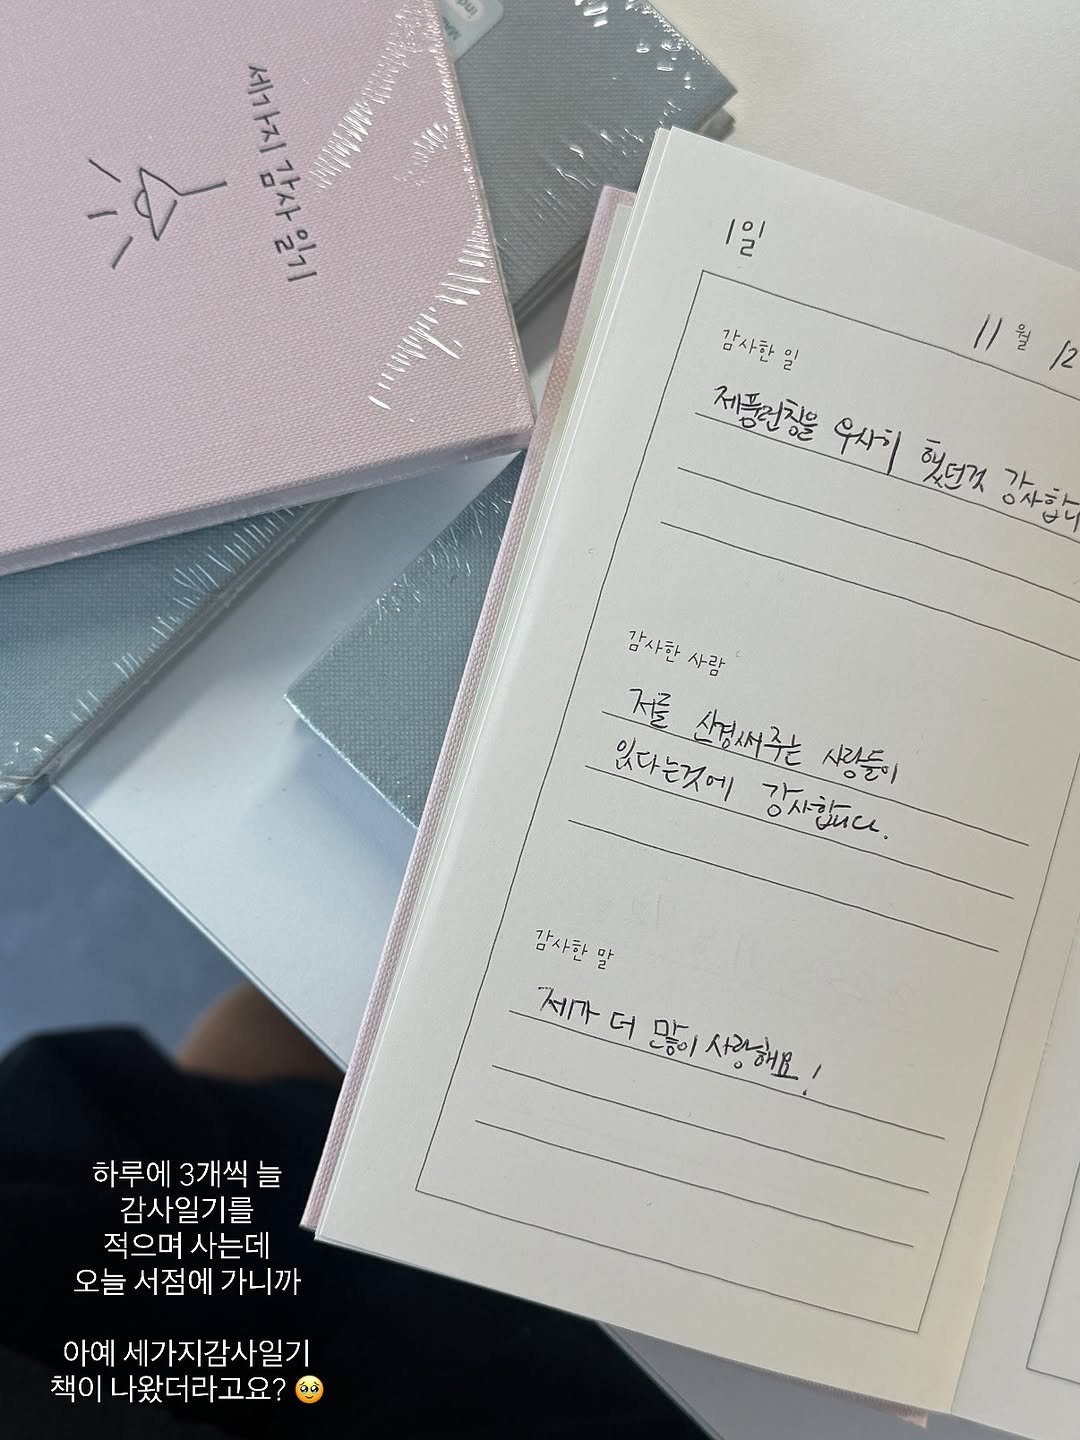 세가지 감사 일기
1일
11월 12
감사한 일
제품런칭을 무사히 했던것 감사합니
감사한 사람
저를 신경써주는 사람들이
있다는것에 감사합니다.
감사한 말
제가 더 많이 사랑해요!
하루에 3개씩 늘
감사일기를
적으며 사는데
오늘 서점에 가니까
아예 세가지감사일기
책이 나왔더라고요? 🥹